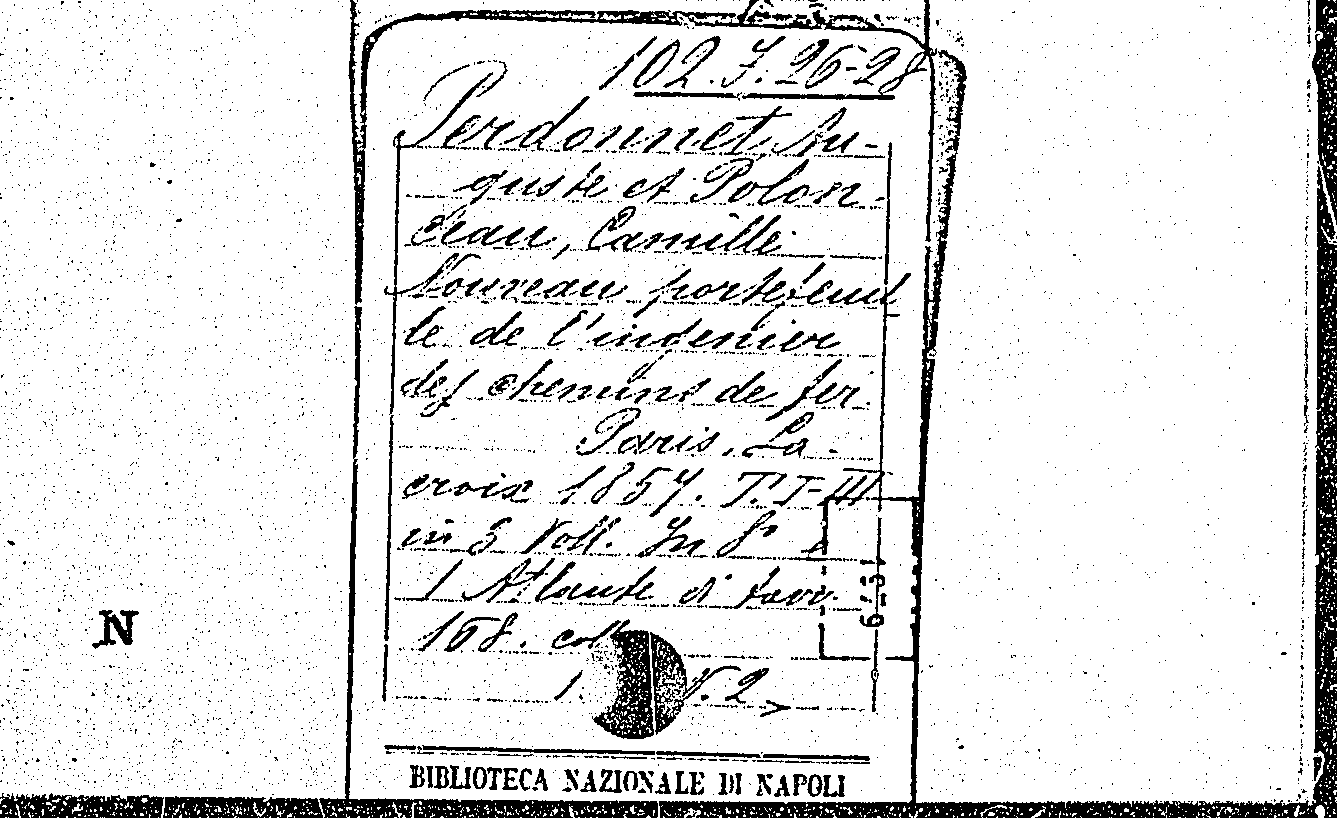 102. J. 26-28
Perdonnet, Au-
guste et Polon-
ceau, Camille
Nouveau portefeuil
le de l'ingenier
des chemins de fer.
Paris. La-
croix 1857. T. I-III
in 3 Voll. In 8º e
1 Atlante di tavv.
168. coll
1. V. 2
6-151
N
BIBLIOTECA NAZIONALE DI NAPOLI